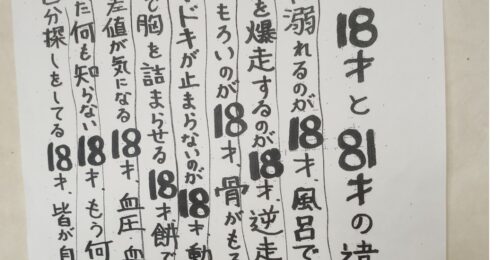 18才と81才の違
溺れるのが18才、風呂で
を爆走するのが18才、逆走
もろいのが18才、骨がもろ
ドキが止まらないのが18才、動
で胸を詰まらせる18才餅で
差値が気になる18才、血圧、血
た何も知らない18才、もう何
分探しをしてる18才、皆が自